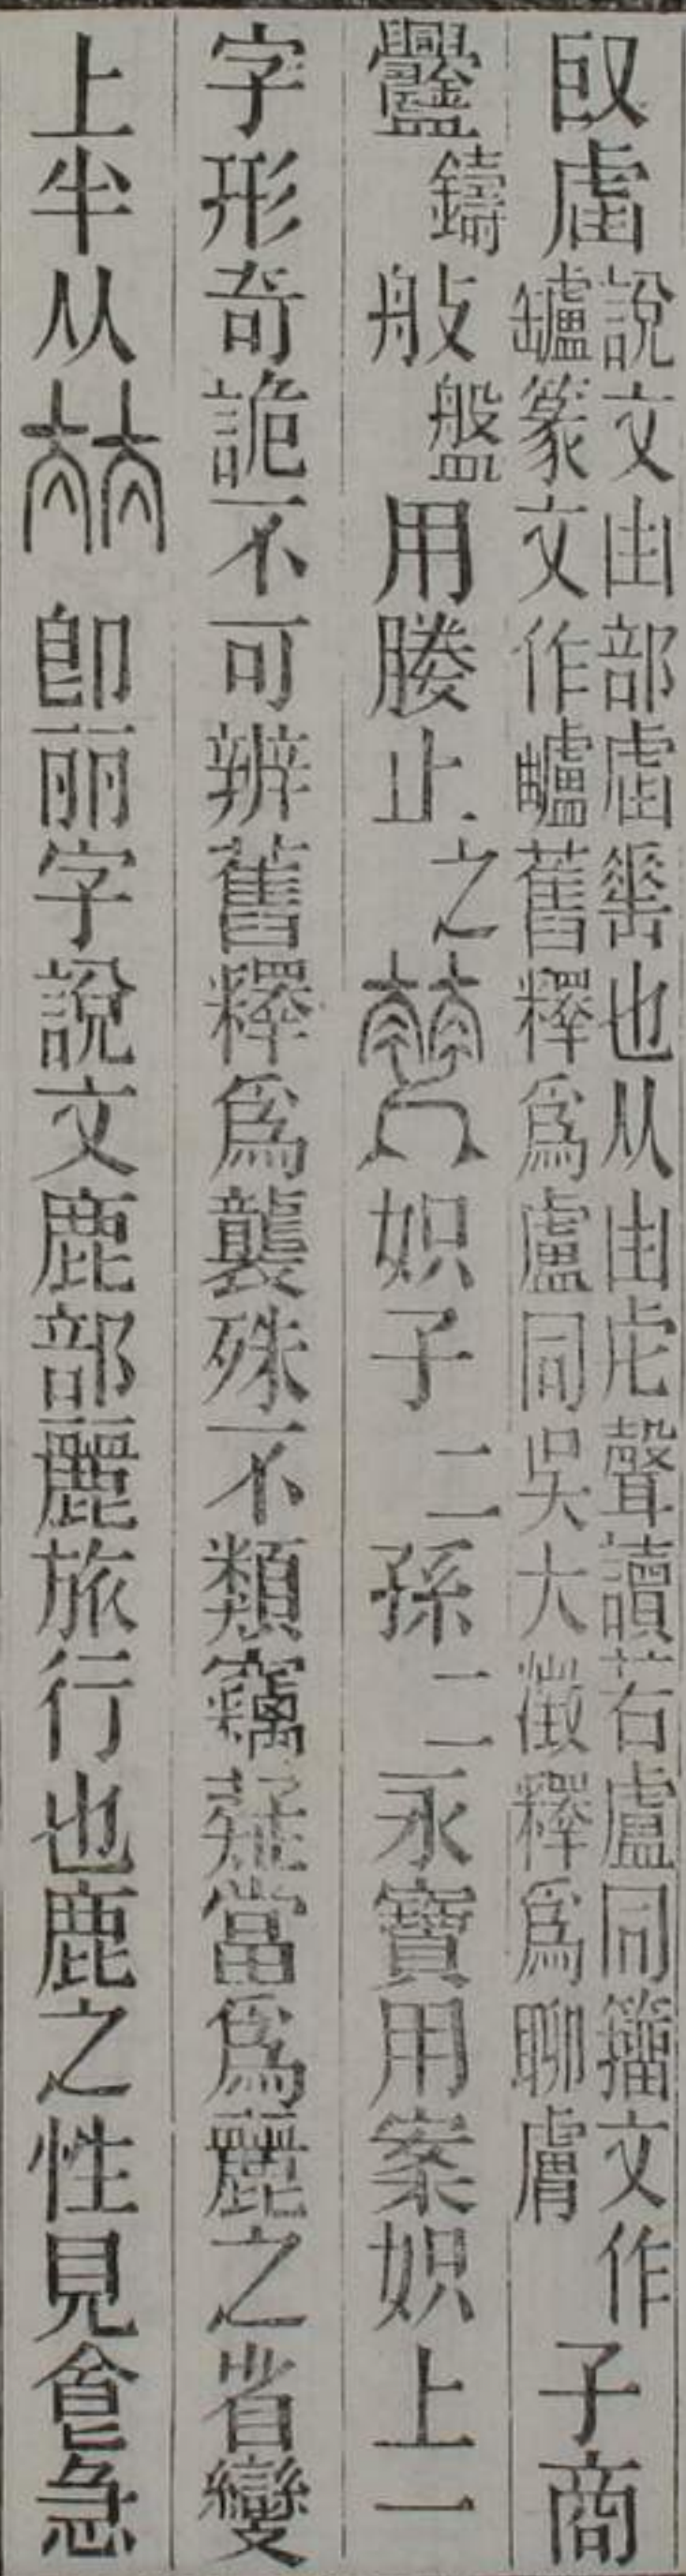 㽙䖒說文甾部䖒𦈢也从甾虍聲讀若盧同籀文作罏篆文作𧆨舊釋爲盧同吳大澂釋爲聊膚子商
鑄般盤用媵止之妀子二孫二永寶用案妀上一
字形奇詭不可辨舊釋爲襲殊不類竊疑當爲麗之省變
上半从卽丽字說文鹿部麗旅行也鹿之性見食急